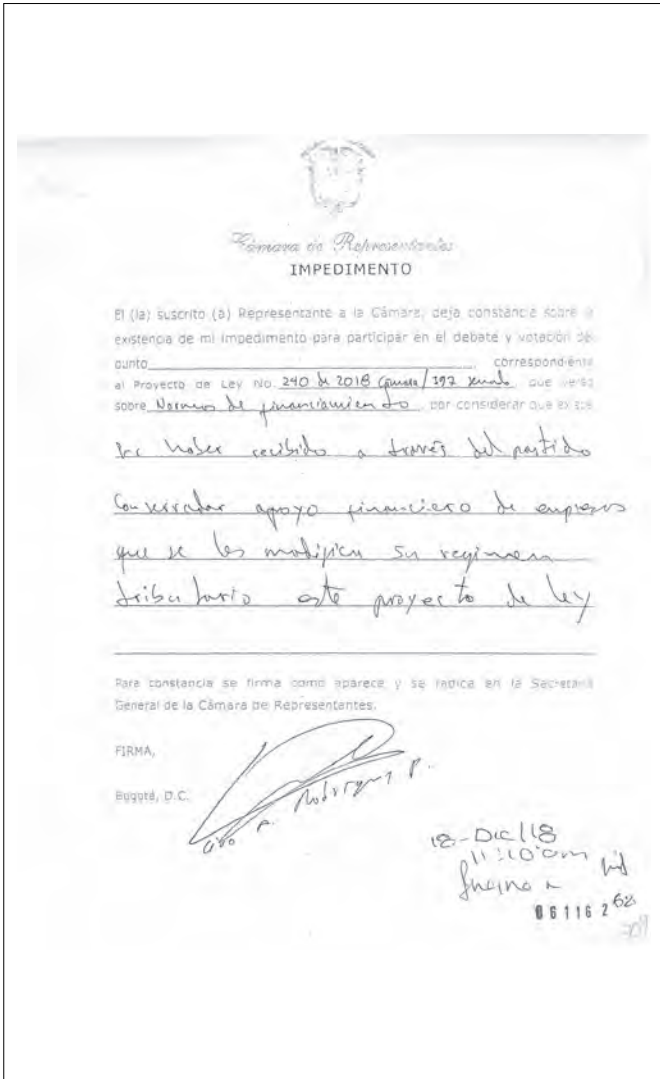 Cámara de Representantes
IMPEDIMENTO
El (la) suscrito (a) Representante a la Cámara, deja constancia sobre la
existencia de mi impedimento para participar en el debate y votación del
punto____________________, correspondiente
al Proyecto de Ley No. 240 de 2018 Cámara/197 senado, que versa
sobre Normas de financiamiento, por considerar que existe
haber recibido a través del partido
Conservador apoyo financiero de empresas
que se les modifica su regimen
tributario este proyecto de ley
Para constancia se firma como aparece y se radica en la Secretaría
General de la Cámara de Representantes.
FIRMA,
Bogotá, D.C.
Ciro A. Rodriguez P.
18-Dic/18
11:10 am
06116 2